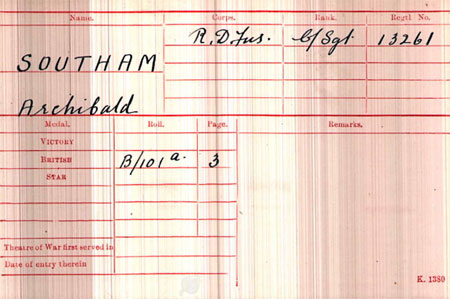 Name. Corps. Rank. Regtl. No.
SOUTHAM R.D.Fus. C/Sgt. 13261
Archibald
Medal. Roll. Page. Remarks.
VICTORY
BRITISH B/101 a. 3
STAR
Theatre of War first served in
Date of entry therein
K. 1380